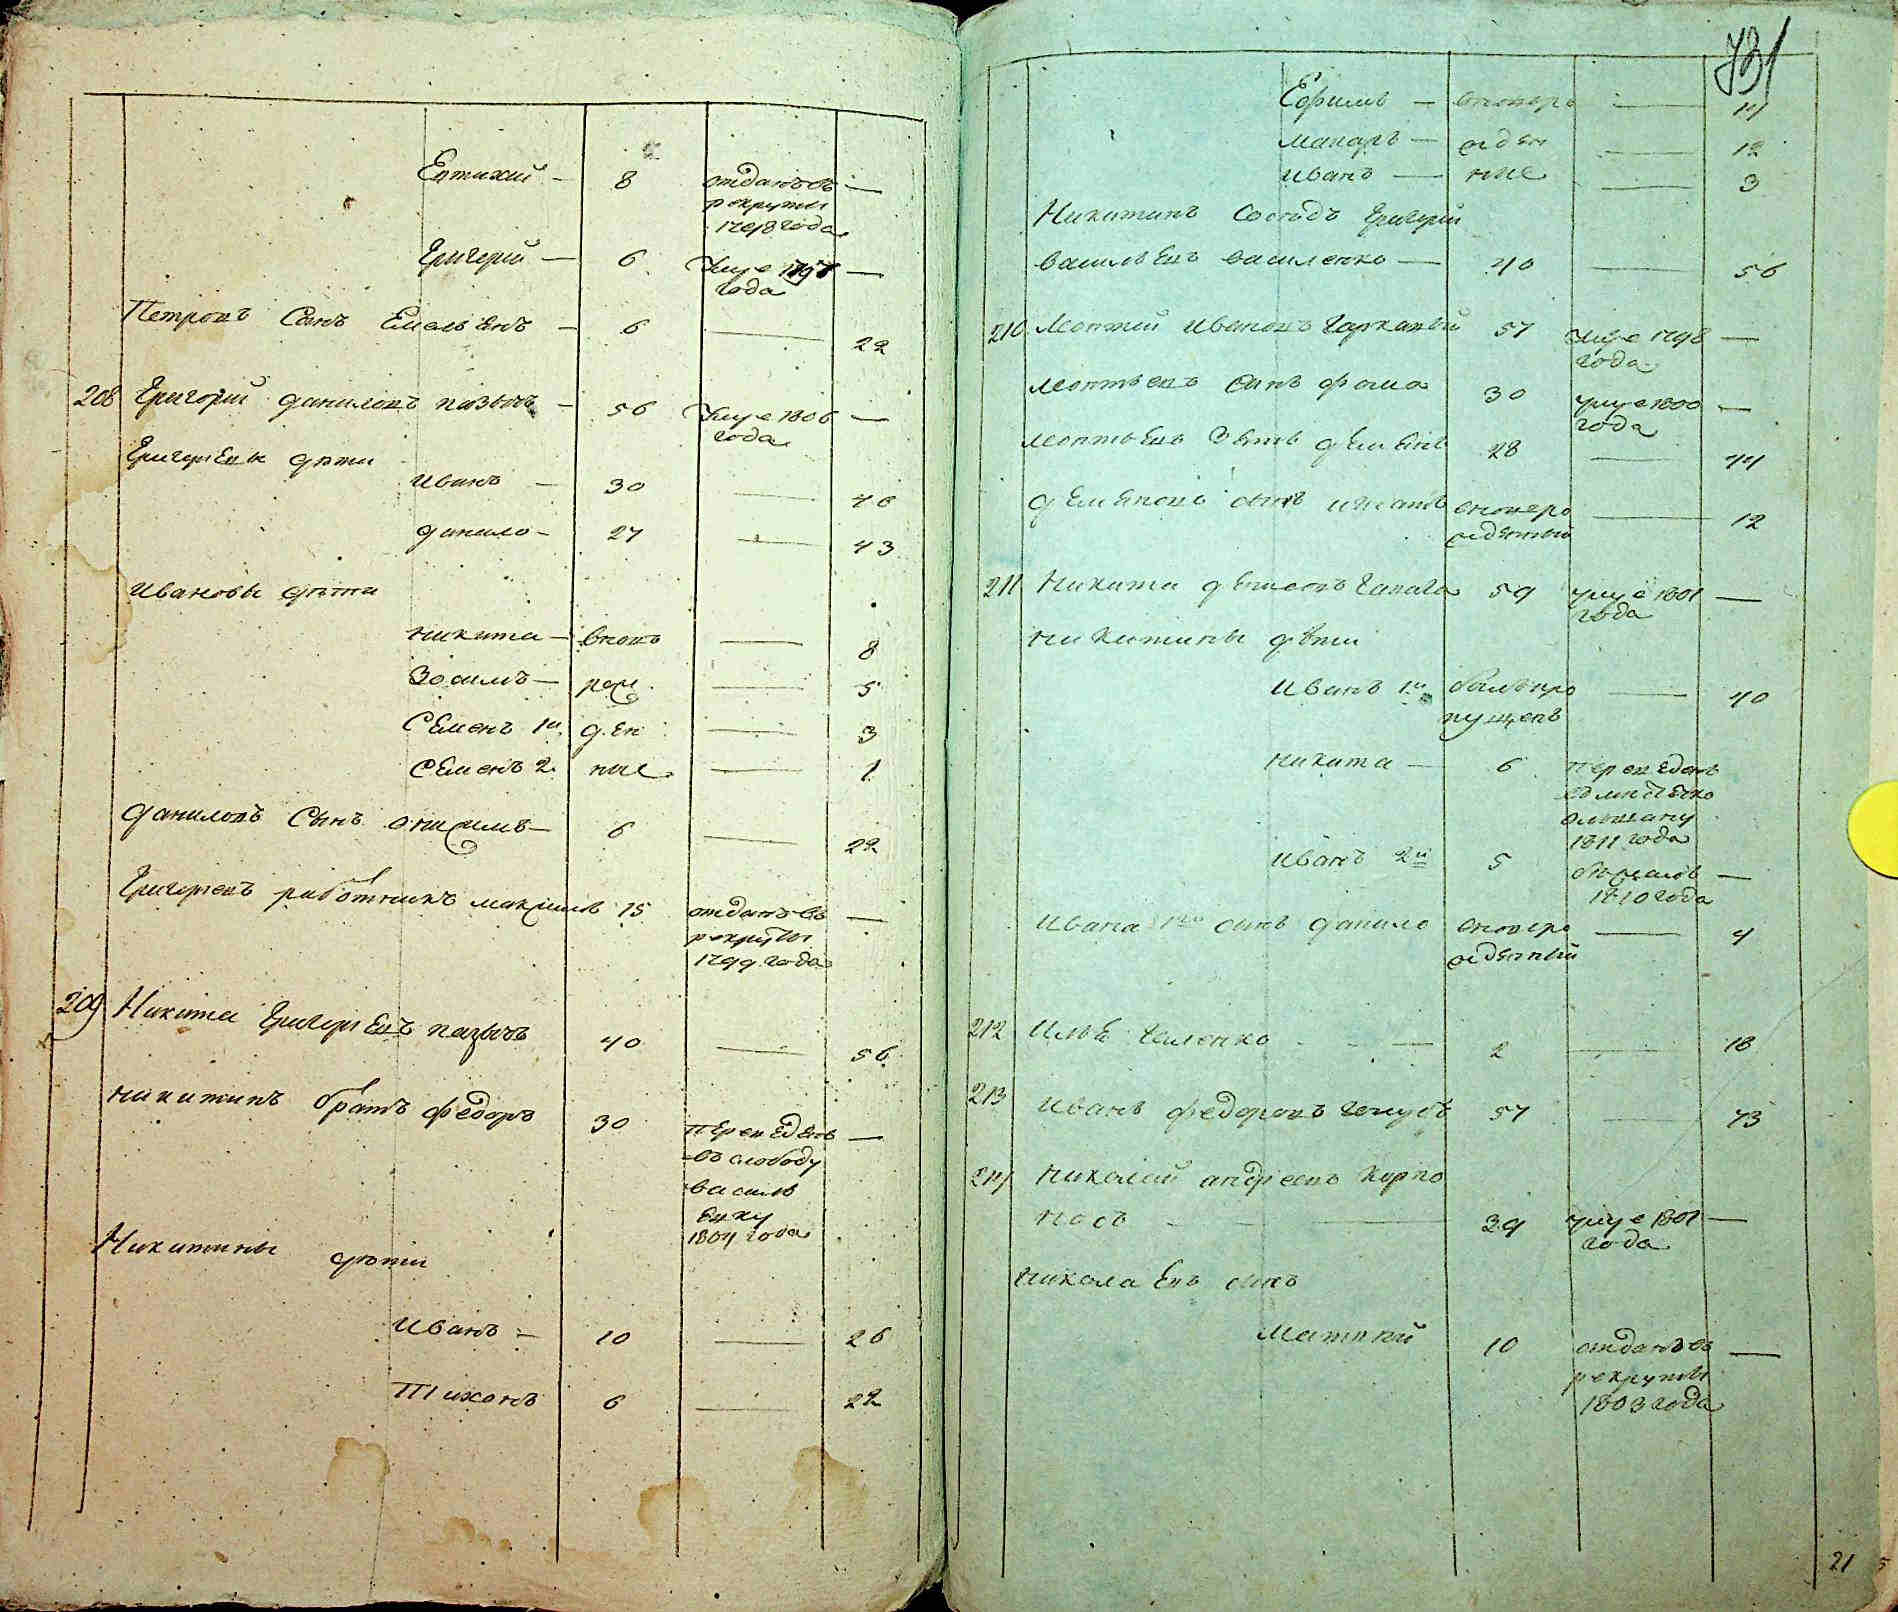 Евтихий — 8 отданъ въ —
рекруты
1798 года
Григорий — 6 умре 1797 —
года
Петровъ Сынъ Емельянъ — 6 — 22
208 Григорий Даниловъ — 56 умре 1806 —
года
Григорьевы дѣти
Иванъ — 30 — 46
Данило — 27 — 43
Ивановы дѣти
Никита — вновь — 8
Зосимъ — рож — 5
Семенъ 1й ден — 3
Семенъ 2 ные — 1
Даниловъ Сынъ Онисимъ — 6 — 22
Григорьевъ работникъ Максимъ 15 отданъ въ —
рекруты
1799 года
209 Никита Григорьевъ 40 — 56
Никитинъ братъ Федоръ 30 переведенъ —
въ слободу
Василь
евку
1804 года
Никитины дѣти
Иванъ — 10 — 26
Тихонъ 6 — 22
731
Ефимъ — вновьро — 14
Макаръ — жден — 12
Иванъ — ные — 3
Никитинъ Сосѣдъ Григорий
Васильевъ Василенко — 40 — 56
210 Леонтий Ивановъ Гаркавый 57 умре 1798 —
года
Леонтьевъ сынъ Фома 30 умре 1800 —
года
Леонтьевъ Зять Демьянъ 28 — 44
Демьяновъ сынъ Игнатъ вновьро — 12
жденный
211 Никита 59 умре 1801 —
года
Никитины дѣти
Иванъ 1й былъ про — 40
пущенъ
Никита — 6 переведенъ
въ мѣстечко
Ольшану
1811 года
Иванъ 2й 5 бѣжалъ —
1810 года
Ивана 1го сынъ Данило вновьро — 4
жденный
212 Илья — 2 — 18
213 Иванъ Федоровъ Голубъ 57 — 73
214 Николай Андреевъ Корпо
носъ — 39 умре 1801 —
года
Николаевъ сынъ
Матвѣй 10 отданъ въ —
рекруты
1803 года
21